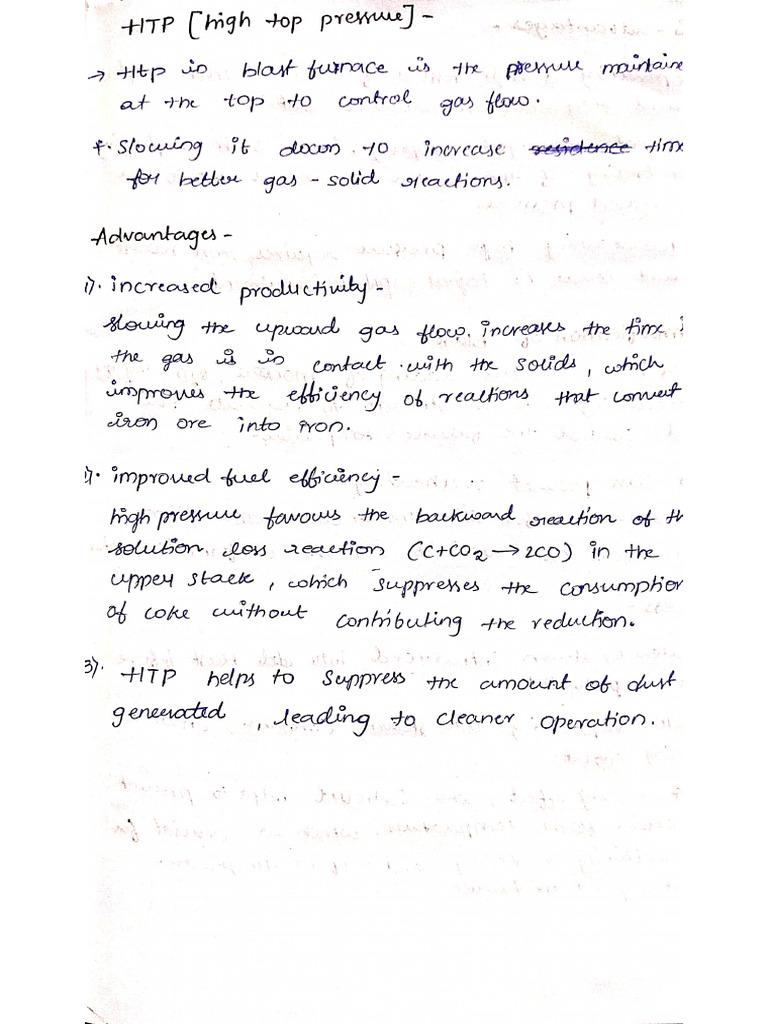 HTP [high top pressure] -
→ Htp in blast furnace is the pressure maintaine
at the top to control gas flow.
*. Slowing it down to increase residence time
for better gas - solid reactions.
Advantages -
1). increased productivity -
slowing the upward gas flow. increases the time i
the gas is in contact with the solids, which
improves the efficiency of reactions that convert
iron ore into iron.
1). improved fuel efficiency -
high pressure favours the backward reaction of th
solution loss reaction (C+CO2 → 2CO) in the
upper stack, which suppresses the consumption
of coke without contributing the reduction.
3). HTP helps to suppress the amount of dust
generated, leading to cleaner operation.